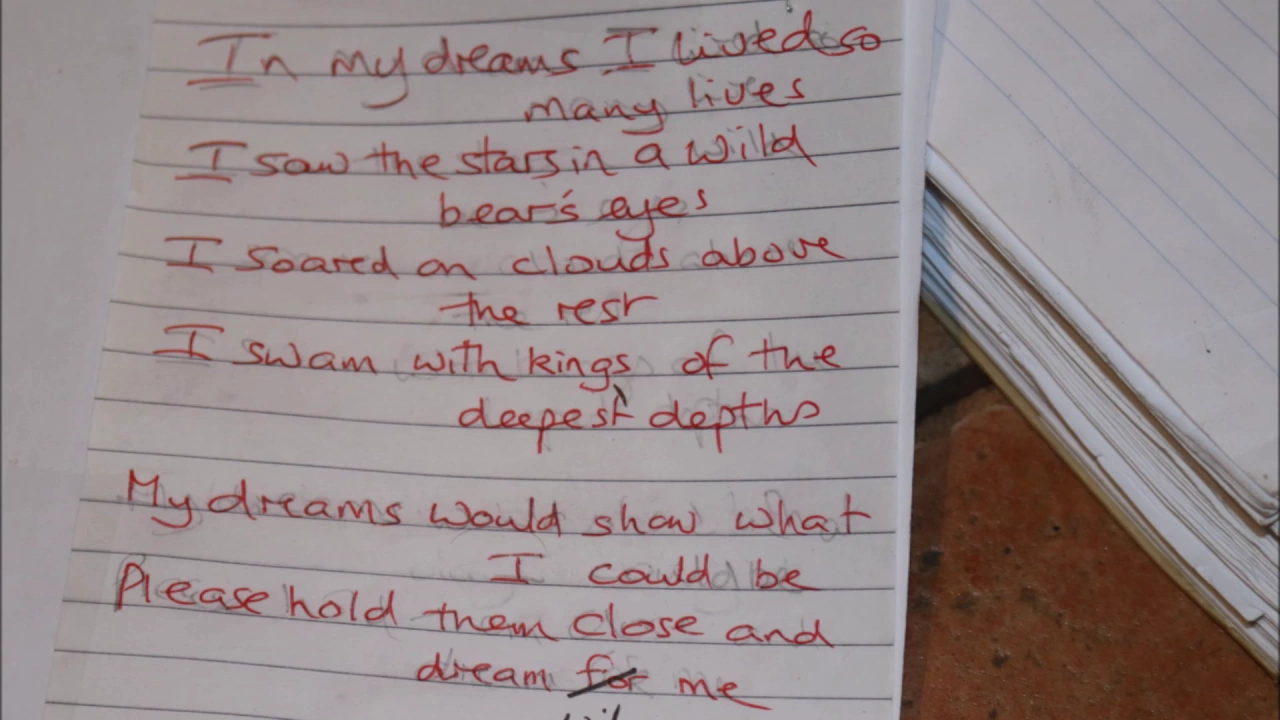 In my dreams I lived so
many lives
I saw the stars in a wild
bear's eyes
I soared on clouds above
the rest
I swam with kings of the
deepest depths
My dreams would show what
I could be
Please hold them close and
dream for me